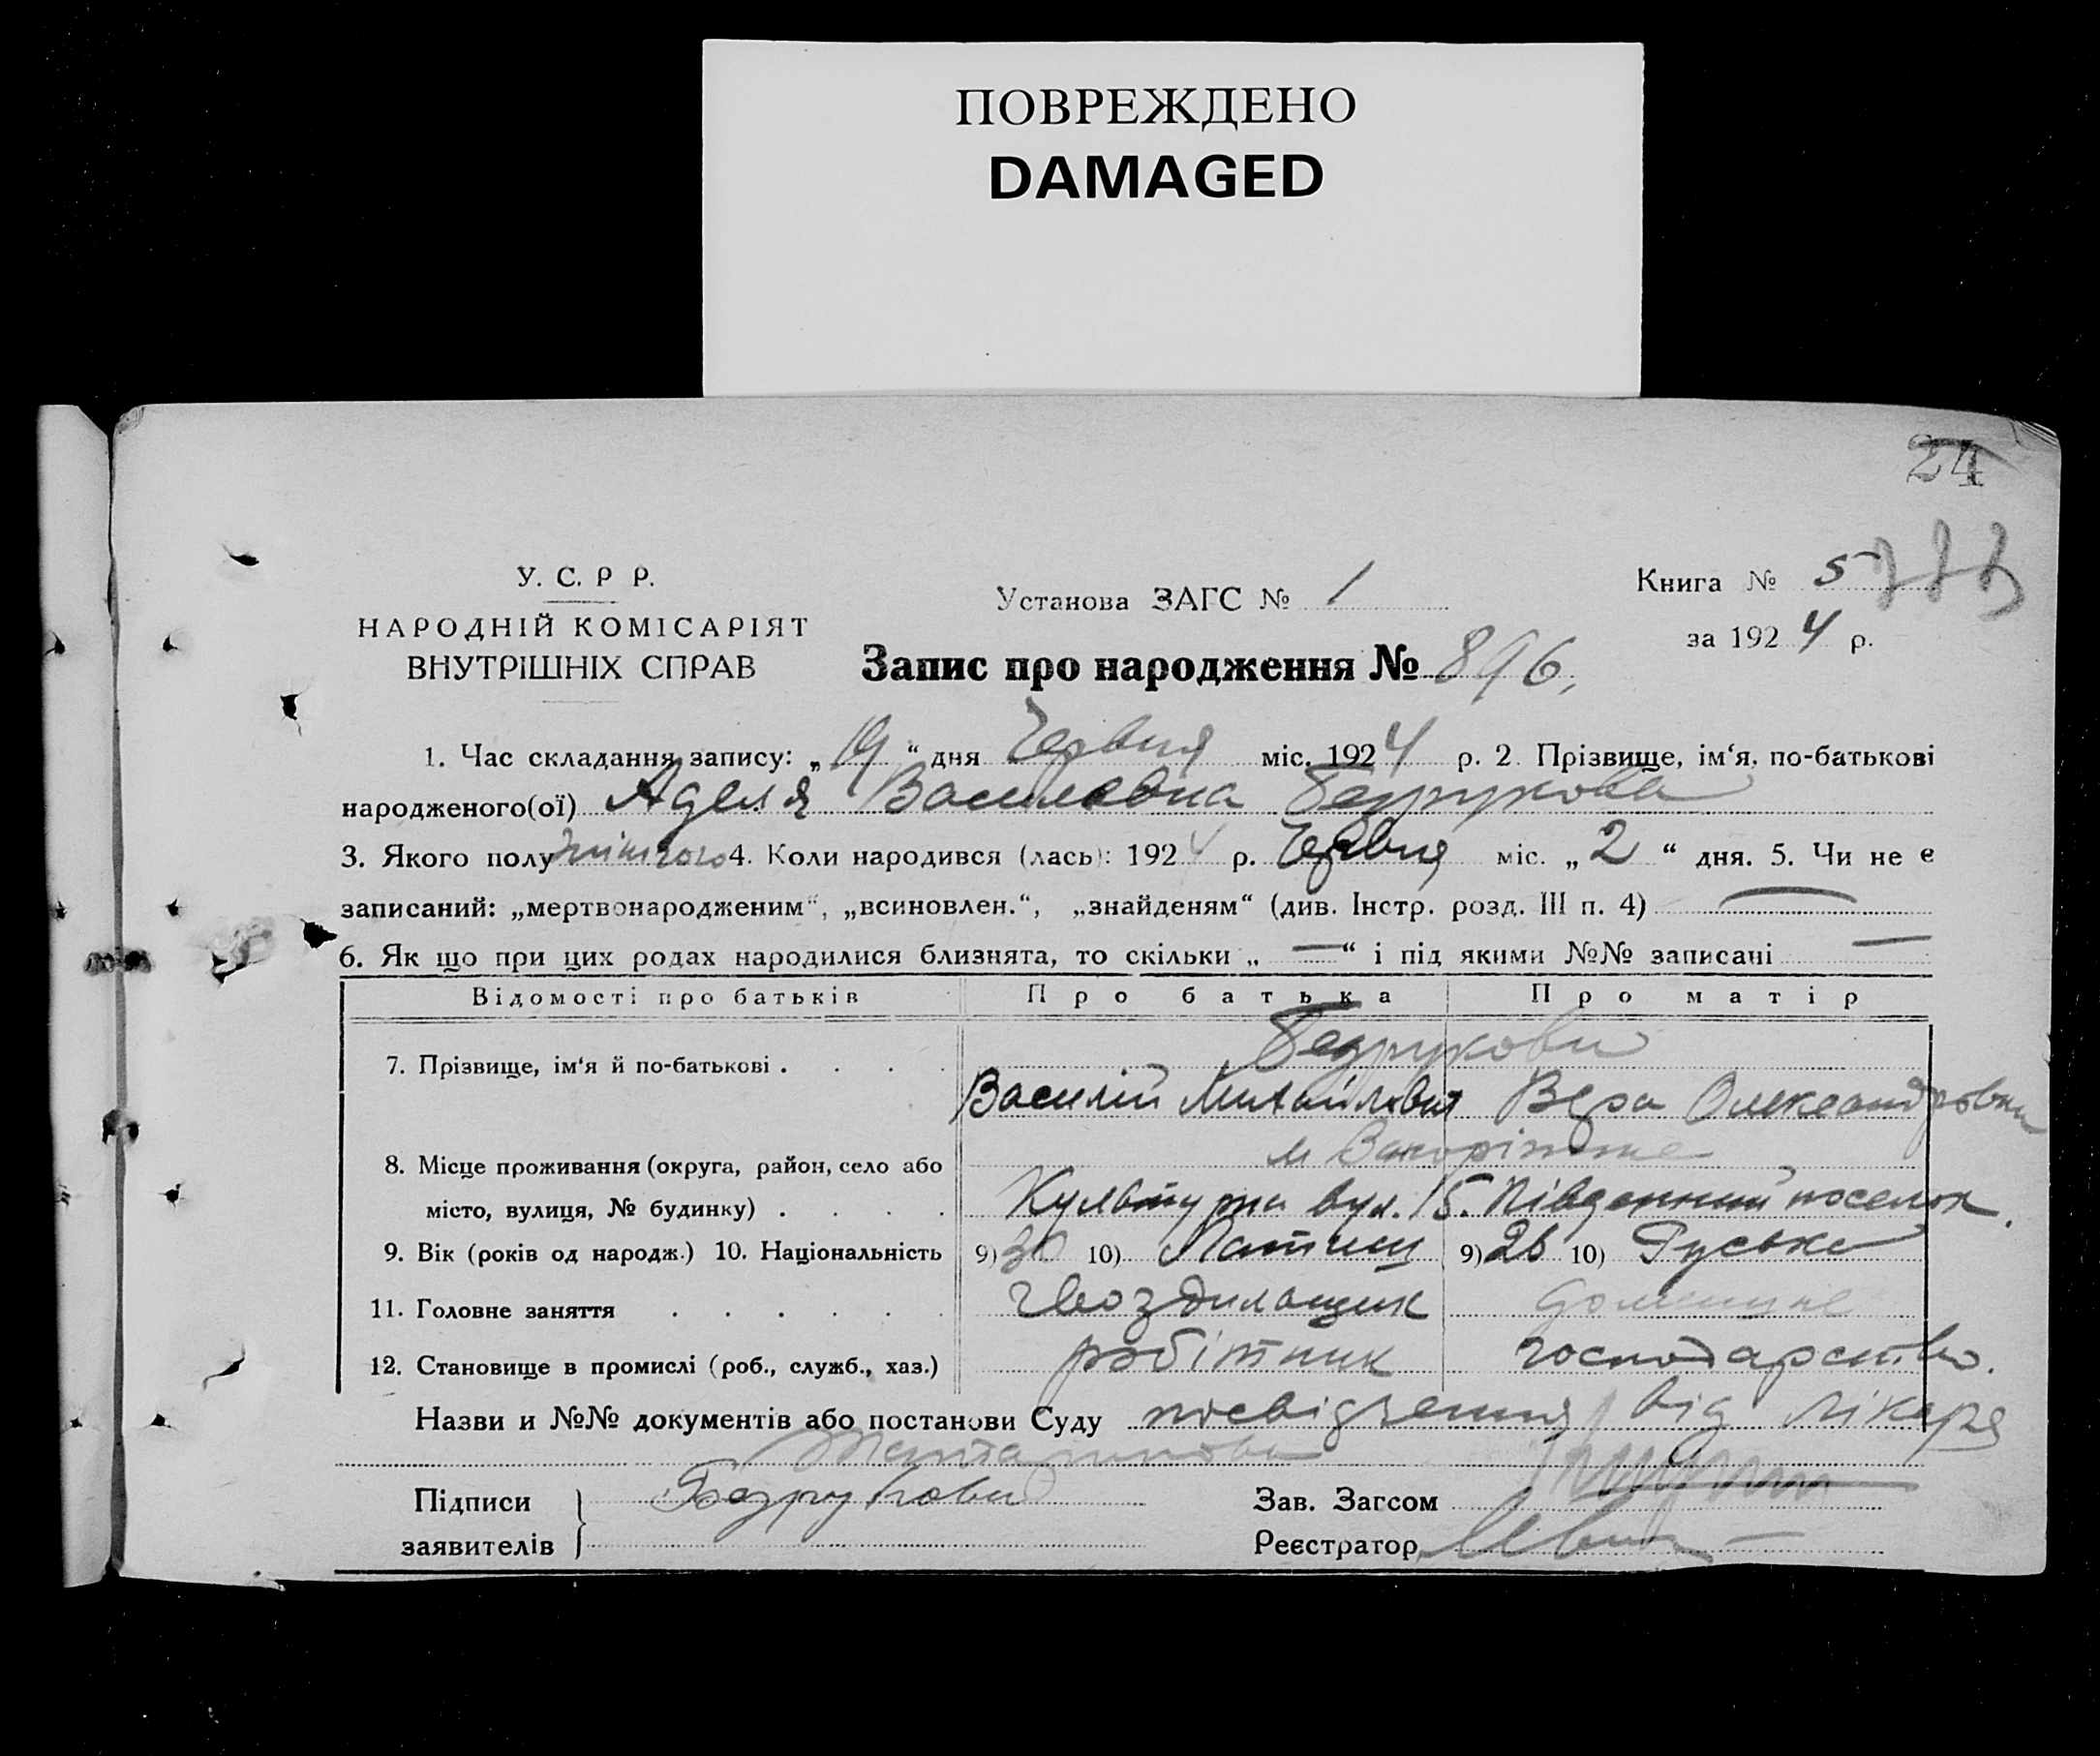 ПОВРЕЖДЕНО
DAMAGED
24
У. С. Р Р.
НАРОДНІЙ КОМІСАРІЯТ
ВНУТРІШНІХ СПРАВ
Установа ЗАГС № 1
Книга № 5
за 1924 р.
Запис про народження № 896,
1. Час складання запису: „19“ дня Червня міс. 1924 р. 2. Прізвище, ім‘я, по-батькові
народженого(ої) Аделя Василевна Бедрукова
3. Якого полу жіночого 4. Коли народився (лась): 1924 р. Червня міс. „2“ дня. 5. Чи не є
записаний: „мертвонародженим“, „всиновлен.“, „знайденям“ (див. Інстр. розд. III п. 4) —
6. Як що при цих родах народилися близнята, то скільки „—“ і під якими №№ записані —
Відомості про батьків Про батька Про матір
7. Прізвище, ім‘я й по-батькові . . . . Бедрукови
Василій Михайлович Вера Олександровна
8. Місце проживання (округа, район, село або м Запоріжже
місто, вулиця, № будинку) . . . . Культурна вул. 15. Південний поселок.
9. Вік (років од народж.) 10. Національність 9) 30 10) Латиш 9) 26 10) Руська
11. Головне заняття . . . . . . гвоздильщик домашнє
12. Становище в промислі (роб., служб., хаз.) робітник господарство.
Назви и №№ документів або постанови Суду посвідчення від лікаря
Підписи Бедрукови Зав. Загсом
заявителів Реєстратор